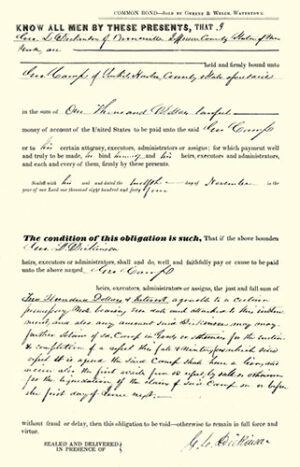 COMMON BOND—SOLD BY
KNOW ALL MEN BY THESE PRESENTS, THAT I
Geo. L. Dickinson of Jefferson County State of New
York am
held and firmly bound unto
Geo Camp of County & State aforesaid
in the sum of One Thousand Dollars lawful
money of account of the United States to be paid unto the said Geo Camp
or to his certain attorney, executors, administrators or assigns; for which payment well
and truly to be made, bind and his heirs, executors and administrators,
and each and every of them, firmly by these presents.
Sealed with his seal and dated the twelfth day of November in the
year of our Lord one thousand eight hundred and forty
The condition of this obligation is such, That if the above bounden
Geo. L. Dickinson
heirs, executors or administrators, shall and do, well, and faithfully pay or cause to be paid
unto the above named Geo Camp
heirs, executors, administrators or assigns, the just and full sum of
Dollars & Interest agreeable to a certain
promissory Note bearing even date and attached to this
and also any amount said Dickinson may
further obtain of sd. Camp in Goods or otherwise for the
& completion of
it is agreed the said Camp shall have a
the first by sale or otherwise
for the liquidation of the claim of said Camp on or before
the first day of June next.
without fraud or delay, then this obligation to be void—otherwise to remain in full force and
virtue.
SEALED AND DELIVERED
IN PRESENCE OF
G. L. Dickinson